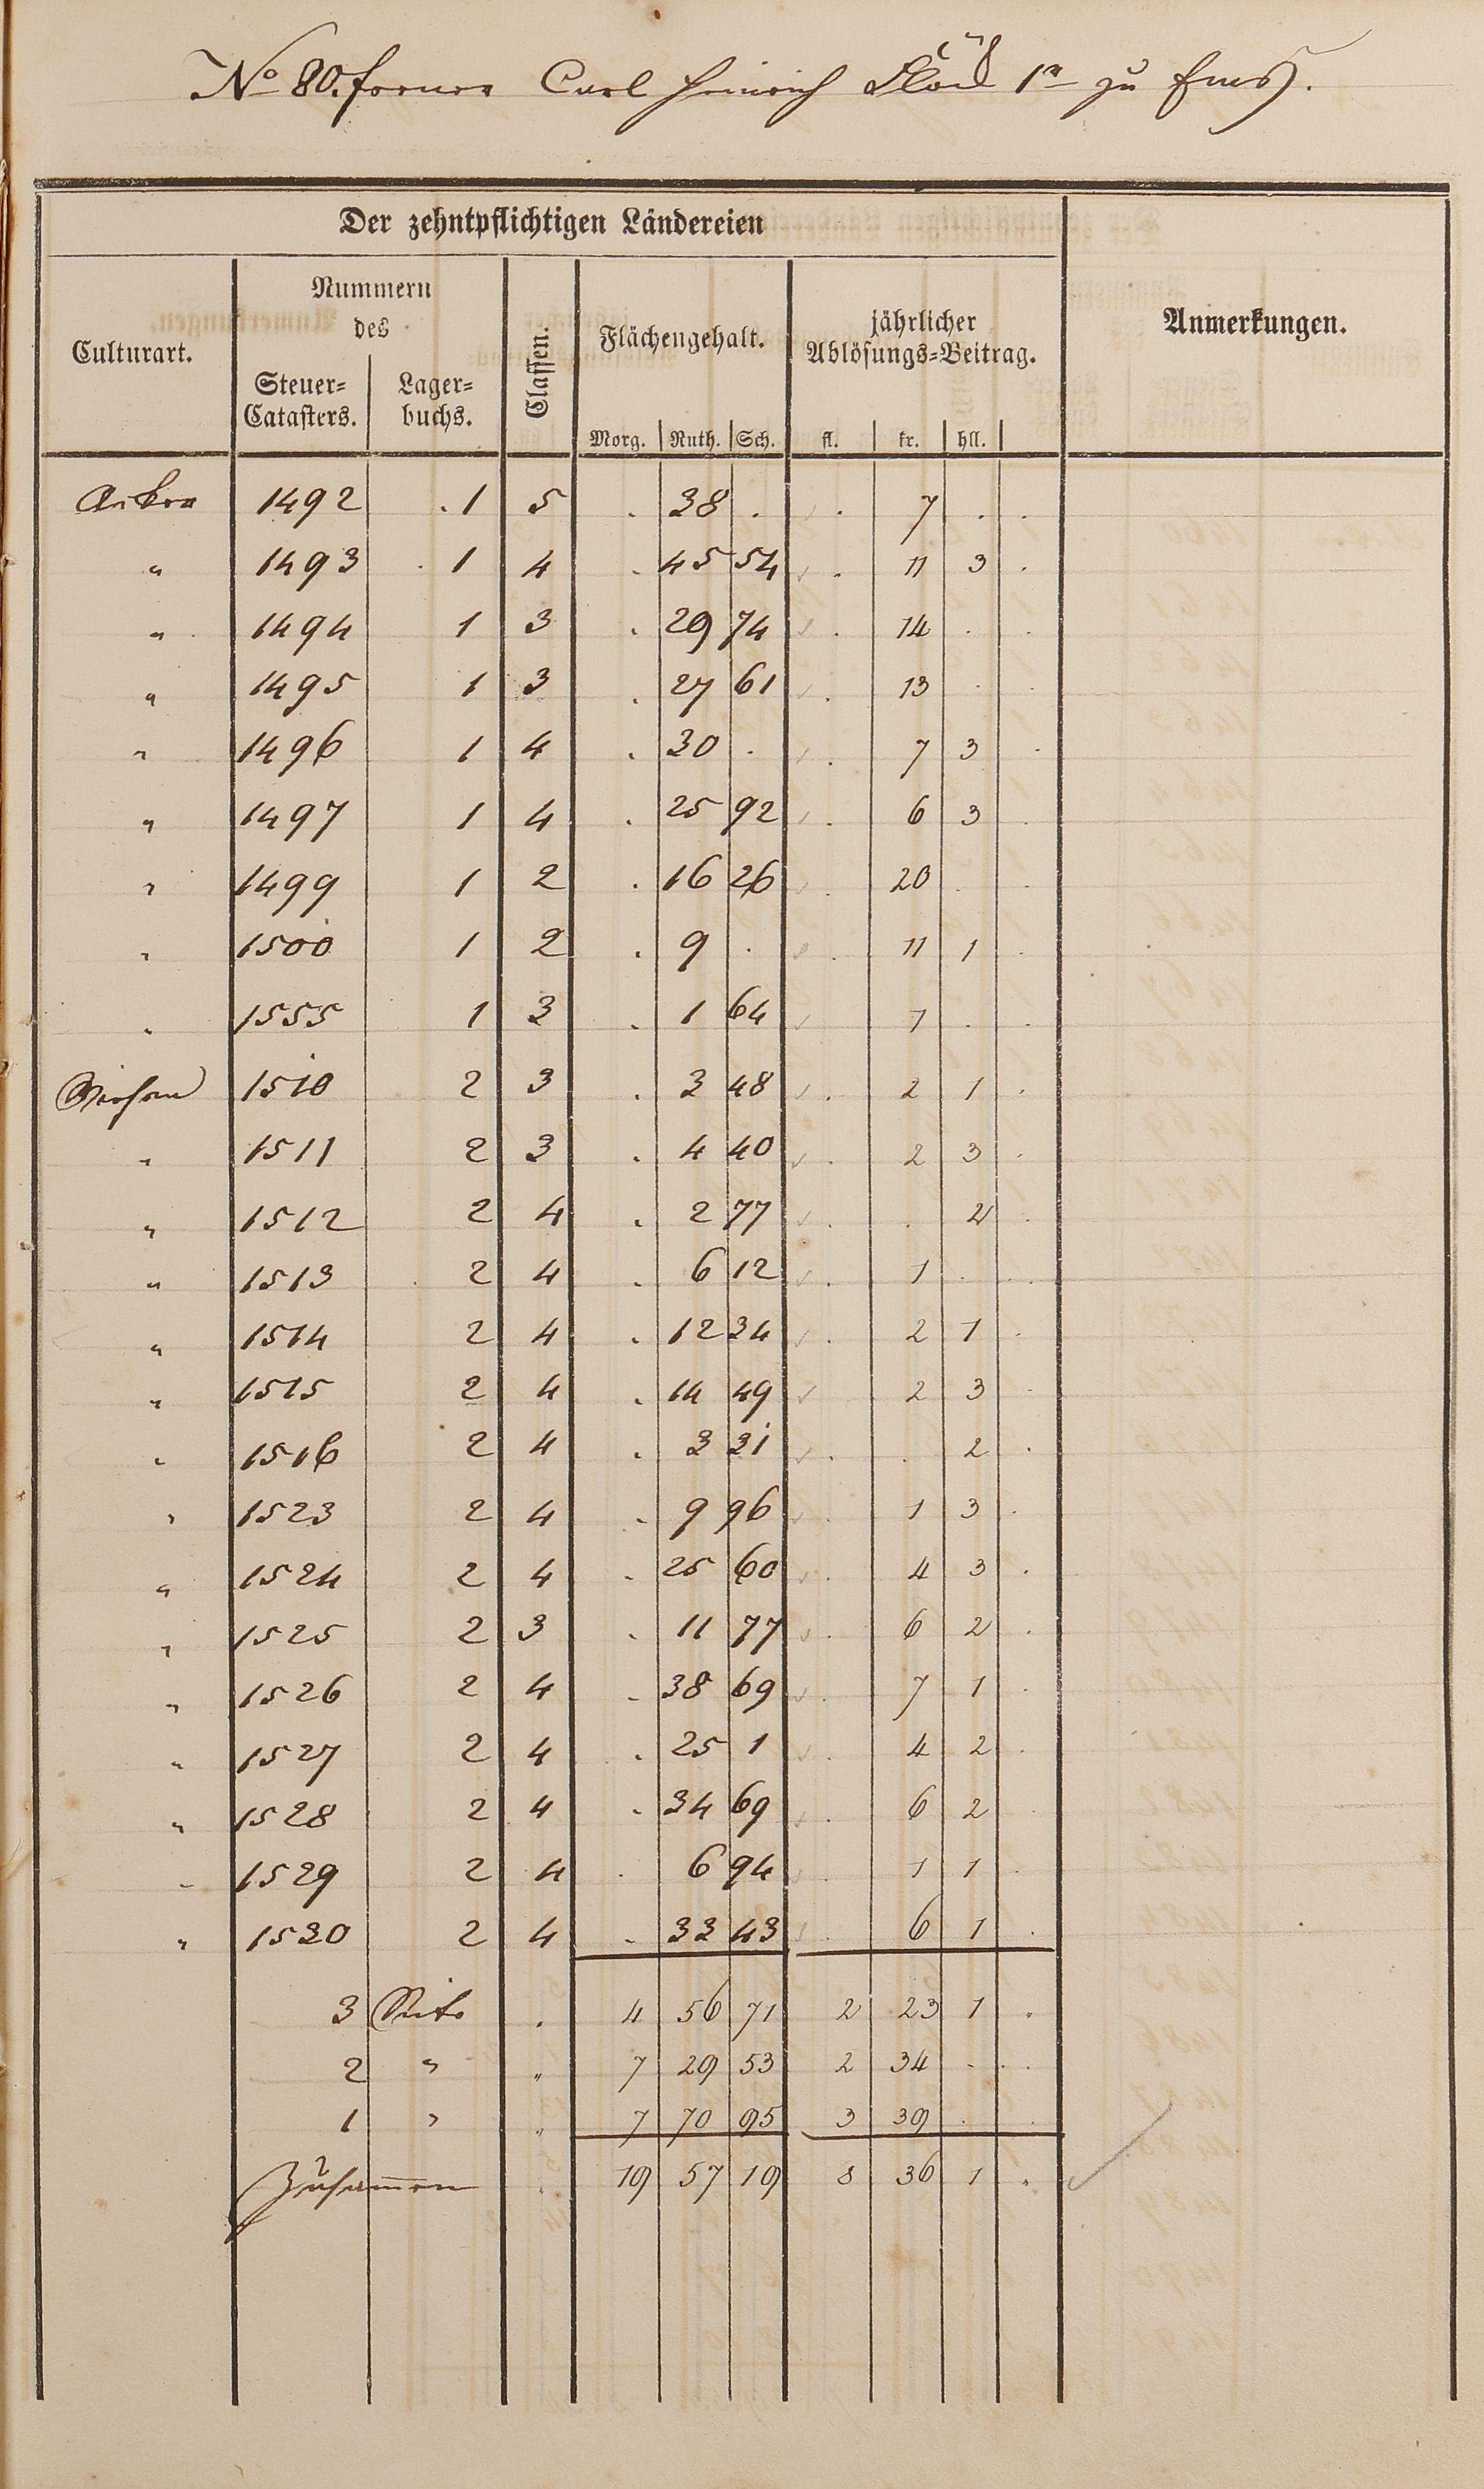 No 80. ferner Carl Heinrich Flöck 1r zu Ems.
Der zehntpflichtigen Ländereien
Culturart. Nummern des Steuer=Catasters. Lager=buchs. Classen. Flächengehalt. Morg. Ruth. Sch. jährlicher Ablösungs=Beitrag. fl. kr. hll. Anmerkungen.
Acker 1492 . 1 5 . 38 . . 7 . .
" 1493 . 1 4 . 45 54 . 11 3 .
" 1494 1 3 . 29 74 . 14 . .
" 1495 1 3 . 27 61 . 13 . .
" 1496 1 4 . 30 . . 7 3 .
" 1497 1 4 . 25 92 . 6 3 .
" 1499 1 2 . 16 26 . 20 . .
" 1500 1 2 . 9 . . 11 1 .
" 1555 1 3 . 1 64 . 1 . .
Wiesen 1510 2 3 . 3 48 . 2 1 .
" 1511 2 3 . 4 40 . 2 3 .
" 1512 2 4 . 2 77 . . 2 .
" 1513 . 2 4 . 6 12 . 1 . .
" 1514 2 4 . 12 34 . 2 1 .
" 1515 2 4 . 14 49 . 2 3 .
" 1516 2 4 . 3 31 . . 2 .
" 1523 2 4 . 9 96 . 1 3 .
" 1524 2 4 . 25 60 . 4 3 .
" 1525 2 3 . 11 77 . 6 2 .
" 1526 2 4 . 38 69 . 7 1 .
" 1527 2 4 . 25 1 . 4 2 .
" 1528 2 4 . 34 69 . 6 2 .
" 1529 2 4 . 6 94 . 1 1 .
" 1530 2 4 . 33 43 . 6 1 .
3 Seite . 4 56 71 2 23 1 .
2 " " 7 29 53 2 34 . .
1 " " 7 70 95 3 39 . .
Zusammen . 19 57 19 8 36 1 .